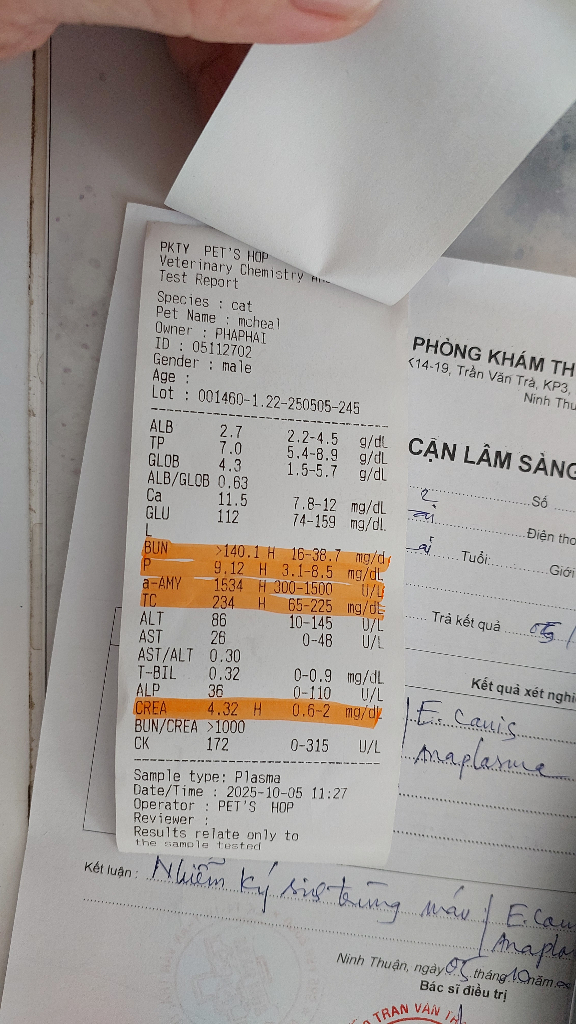 PKTY PET'S HOP
Veterinary Chemistry
Test Report
Species : cat
Pet Name : mcheal
Owner : PHAPHAI
ID : 05112702
Gender : male
Age :
Lot : 001460-1.22-250505-245
ALB 2.7 2.2-4.5 g/dL
TP 7.0 5.4-8.9 g/dL
GLOB 4.3 1.5-5.7 g/dL
ALB/GLOB 0.63
Ca 11.5 7.8-12 mg/dL
GLU 112 74-159 mg/dL
L
BUN >140.1 H 16-38.7 mg/d
P 9.12 H 3.1-8.5 mg/dL
a-AMY 1534 H 300-1500 U/L
TC 234 H 65-225 mg/dL
ALT 86 10-145 U/L
AST 26 0-48 U/L
AST/ALT 0.30
T-BIL 0.32 0-0.9 mg/dL
ALP 36 0-110 U/L
CREA 4.32 H 0.6-2 mg/dL
BUN/CREA >1000
CK 172 0-315 U/L
Sample type: Plasma
Date/Time : 2025-10-05 11:27
Operator : PET'S HOP
Reviewer :
Results relate only to
the sample tested
PHÒNG KHÁM TH
K14-19, Trần Văn Trà, KP3,
Ninh Thu
CẬN LÂM SÀNG
Số
Điện tho
Tuổi: Giới
Trả kết quả 05/
Kết quả xét nghi
E. Canis
Anaplasma
Kết luận : Nhiễm ký sinh trùng máu / E. Cau
Anapla
Ninh Thuận, ngày 05 tháng 10 năm
Bác sĩ điều trị
TRAN VAN TR